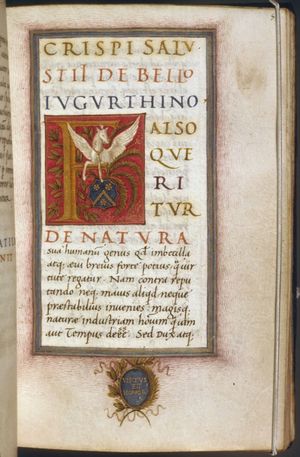 CRISPI SALV
STII DE BELLO
IVGVRTHINO
FALSO
QVE
RI
TVR
DE NATVRA
sua humanū genus qđ imbecilla
atq; æui breuis forte potius q̃ uir
tute regatur. Nam contra repu
tando neq; maius aliud neque
præstabilius inuenies: magisq;
naturæ industriam hoīum quam
aut tempus deēē. Sed Dux atq;